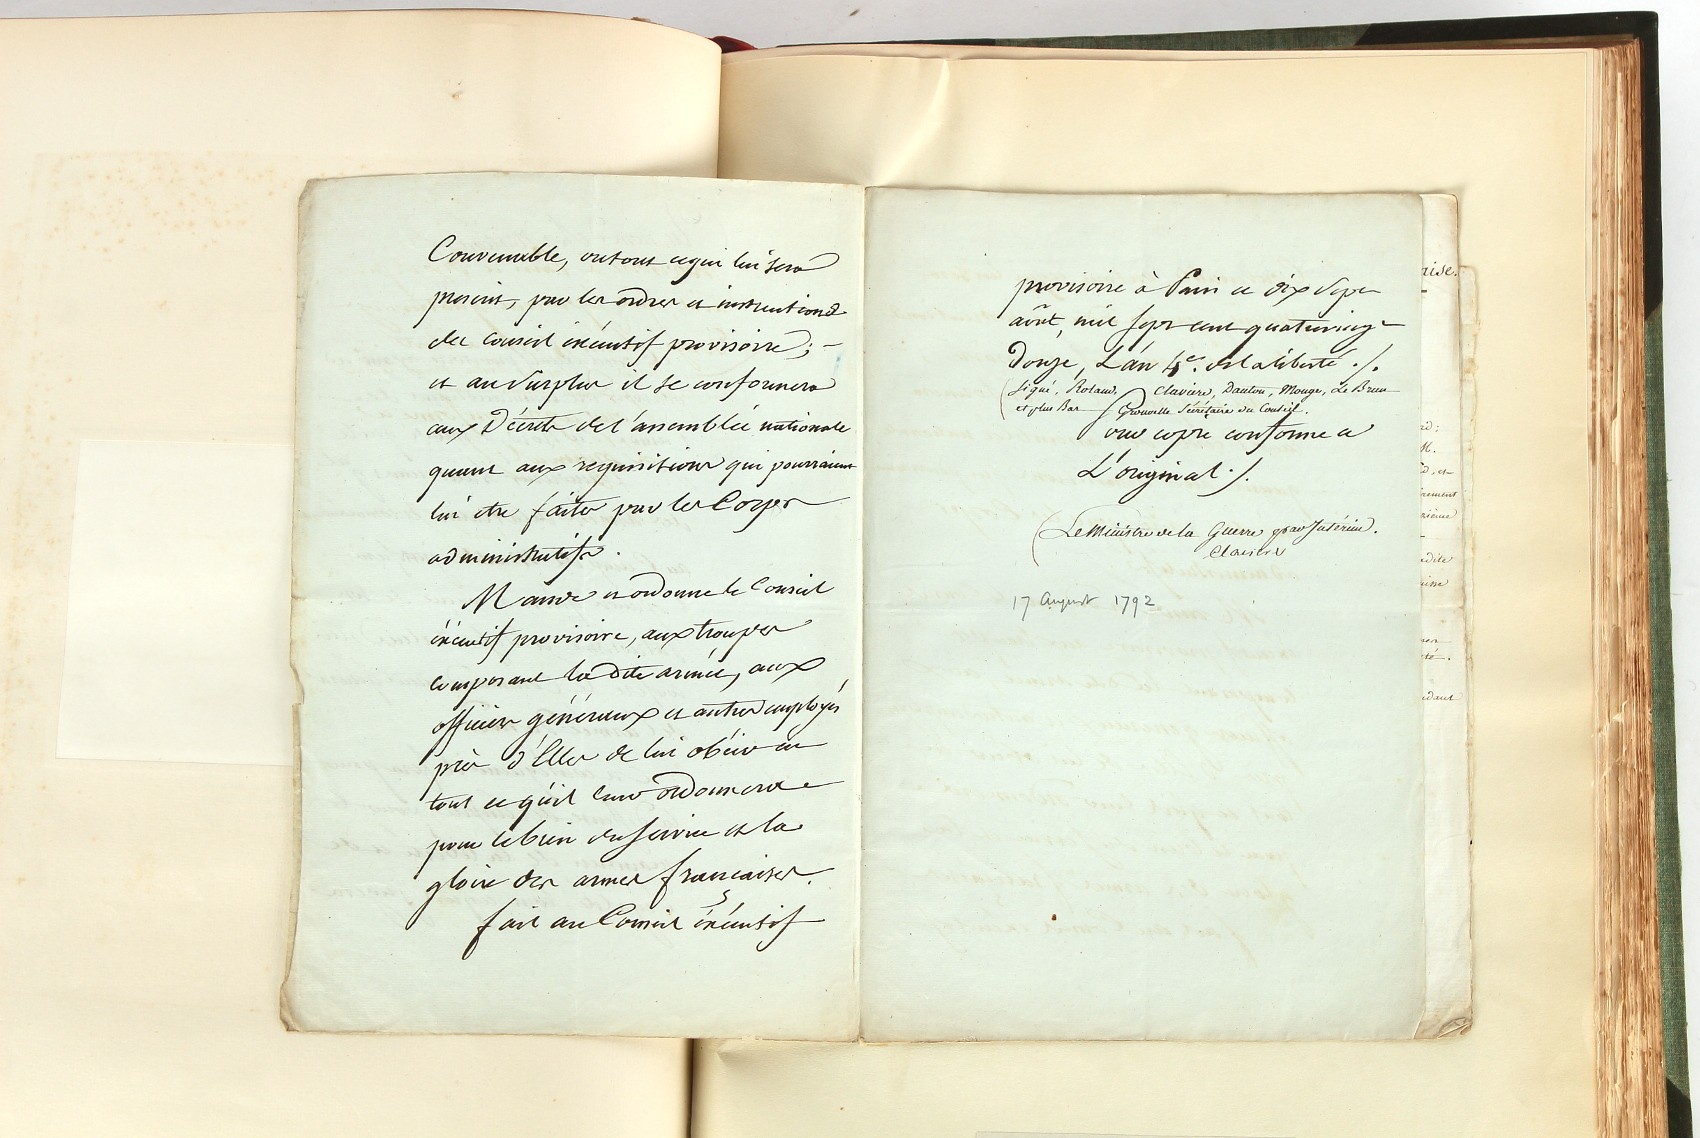 Convenable, outout cequi lui sera
prescrit, par les ordres et instructions
du Conseil éxécutif provisoire; -
et au Surplus il se conformera
aux Décrets de l'assemblée nationale
quant aux requisitions qui pourraient
lui etre faites par les Corps
administratifs.
Mande et ordonne le Conseil
éxécutif provisoire, aux troupes
composant la dite armée, aux
officiers généraux et autres employés
près d'Elles de lui obéir en
tout ce qu'il leur ordonnera
pour le bien du service et la
gloire des armes françaises.
fait au Conseil éxécutif
provisoire à Paris ce dix Sept
août, mil sept cent quatrevingt
Douze, L'an 4e. de la liberté ./.
(Signé, Roland, Claviere, Danton, Monge, Le Brun
et plus Bas Grouvelle Sécrétaire du Conseil.
pour copie conforme a
L'original ./.
(Le Ministre de la Guerre par Intérim.
Claviere
17 August 1792
aise.
M.